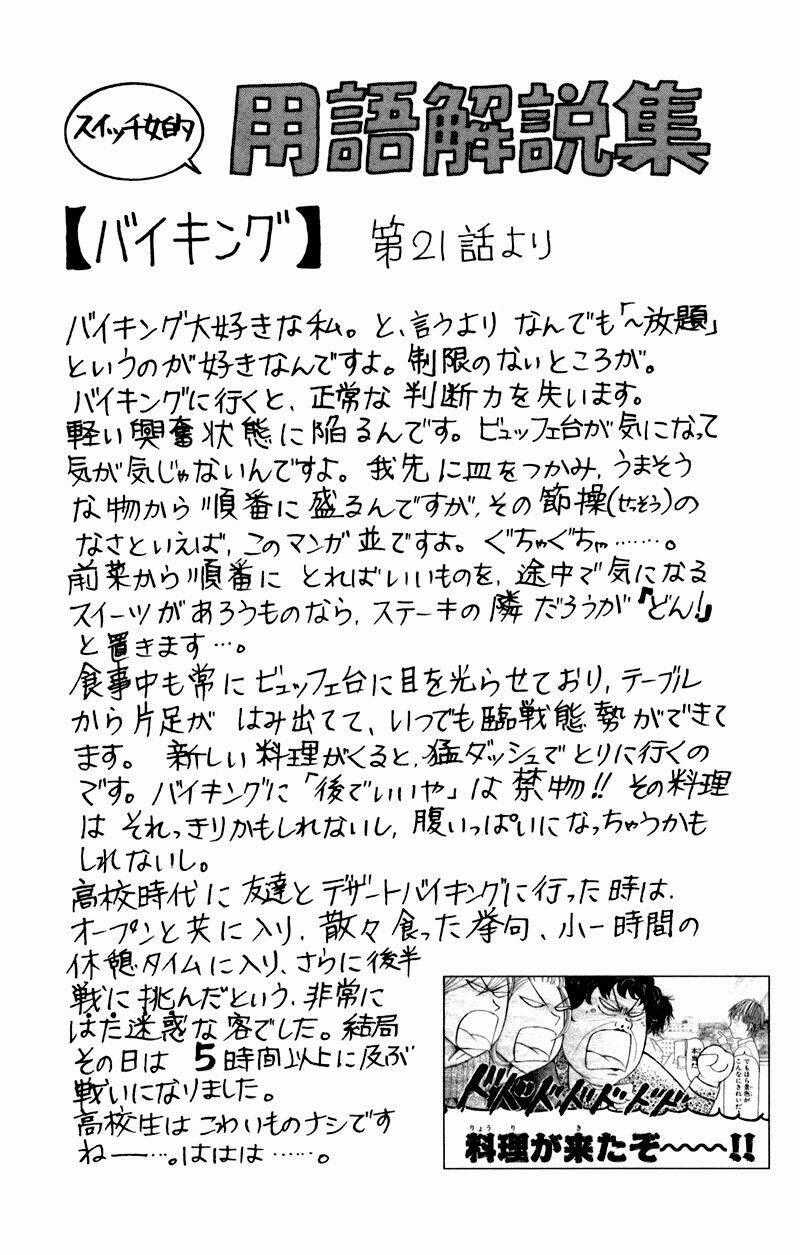 スイッチ女的
用語解説集
【バイキング】 第21話より
バイキング大好きな私。と、言うより なんでも「〜放題」
というのが好きなんですよ。制限のないところが。
バイキングに行くと、正常な判断力を失います。
軽い興奮状態に陥るんです。ビュッフェ台が気になって
気が気じゃないんですよ。我先に皿をつかみ、うまそう
な物から順番に盛るんですが、その節操(せっそう)の
なさといえば、このマンガ並ですよ。ぐちゃぐちゃ………。
前菜から順番に とればいいものを、途中で気になる
スイーツがあろうものなら、ステーキの隣だろうが『どん!』
と置きます…。
食事中も常にビュッフェ台に目を光らせており、テーブル
から片足が はみ出てて、いつでも臨戦態勢ができて
ます。 新しい料理がくると、猛ダッシュでとりに行くの
です。バイキングに「後でいいや」は禁物!! その料理
は それっきりかもしれないし、腹いっぱいになっちゃうかも
しれないし。
高校時代に友達とデザートバイキングに行った時は、
オープンと共に入り、散々食った挙句、小一時間の
休憩タイムに入り、さらに後半
戦に挑んだという、非常に
はた迷惑な客でした。結局
その日は 5時間以上に及ぶ
戦いになりました。
高校生はこわいものナシです
ねー…。ははは……。
でもほら景色が
こんなにきれいだ
ドドドドドドド
料理が来たぞ〜〜〜〜!!
りょうり き